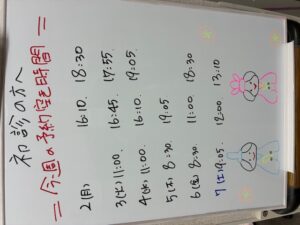 初診の方へ
=今週の予約空き時間=
2(月) 16:10. 18:30
3(火) 11:00. 16:45. 17:55.
4(水) 11:00. 16:10. 19:05.
5(木) 8:30. 19:05
6(金) 8:30 11:00 18:30
7(土) 9:05. 12:00 13:10